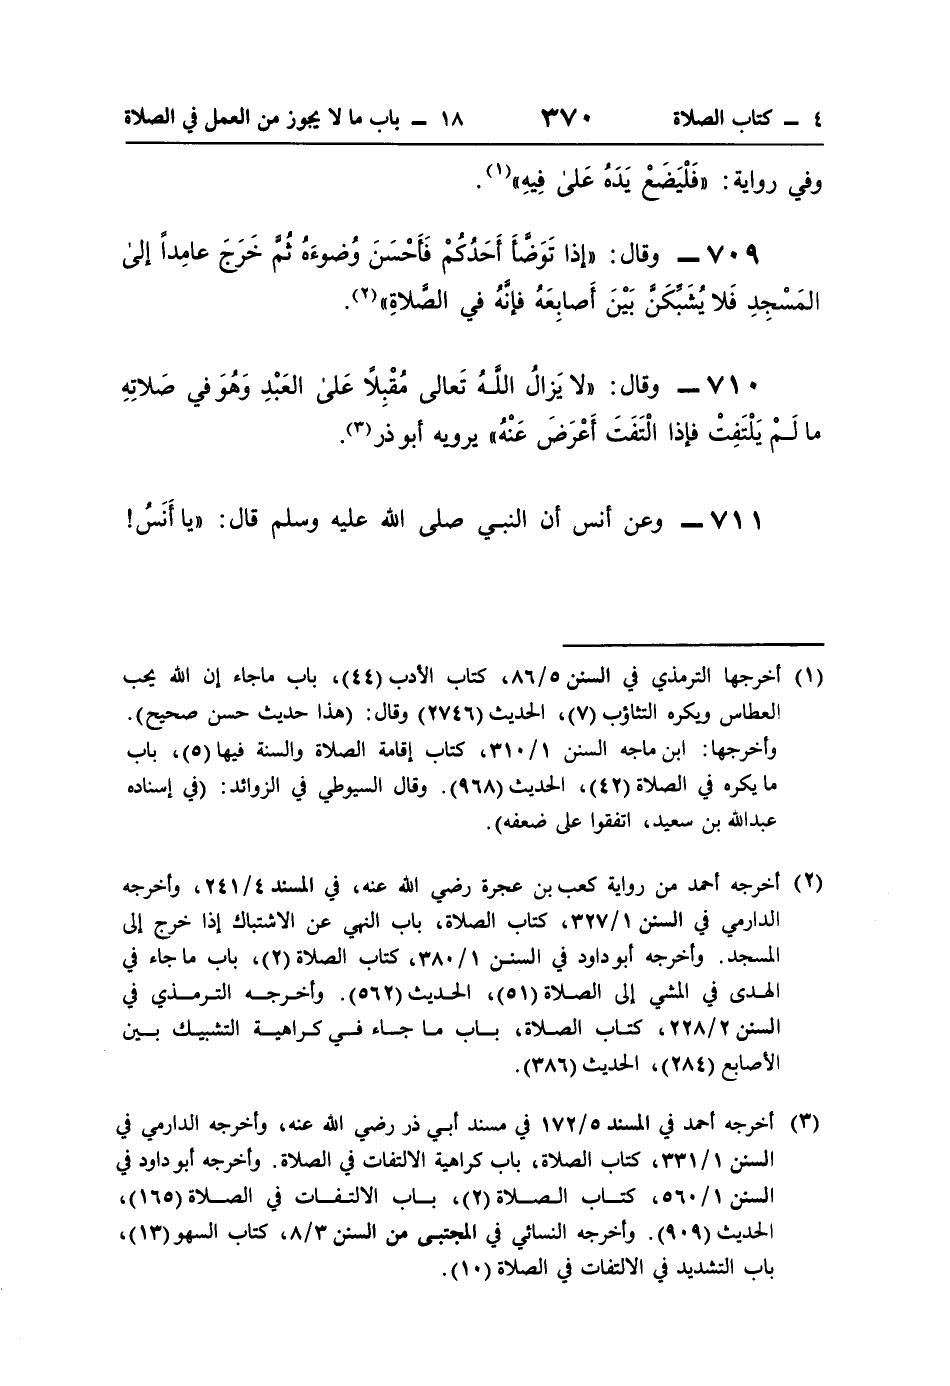 ٤ ـ كتاب الصلاة ٣٧٠ ١٨ ـ باب ما لا يجوز من العمل في الصلاة
وفي رواية: «فَلْيَضَعْ يَدَهُ عَلىٰ فِيهِ»(١).
٧٠٩ ـ وقال: «إذا تَوَضَّأَ أَحَدُكُمْ فَأَحْسَنَ وُضوءَهُ ثُمَّ خَرَجَ عامِداً إلىٰ
المَسْجِدِ فَلا يُشَبِّكَنَّ بَيْنَ أَصابِعَهُ فإنَّهُ في الصَّلاةِ»(٢).
٧١٠ ـ وقال: «لا يَزالُ اللَّهُ تَعالى مُقْبِلاً عَلىٰ العَبْدِ وَهُوَ في صَلاتِهِ
ما لَمْ يَلْتَفِتْ فإذا الْتَفَتَ أَعْرَضَ عَنْهُ» يرويه أبو ذر(٣).
٧١١ ـ وعن أنس أن النبي صلى الله عليه وسلم قال: «يا أَنَسُ!
(١) أخرجها الترمذي في السنن ٨٦/٥، كتاب الأدب (٤٤)، باب ماجاء إن الله يحب
العطاس ويكره التثاؤب (٧)، الحديث (٢٧٤٦) وقال: (هذا حديث حسن صحيح).
وأخرجها: ابن ماجه السنن ٣١٠/١، كتاب إقامة الصلاة والسنة فيها (٥)، باب
ما يكره في الصلاة (٤٢)، الحديث (٩٦٨). وقال السيوطي في الزوائد: (في إسناده
عبدالله بن سعيد، اتفقوا على ضعفه).
(٢) أخرجه أحمد من رواية كعب بن عجرة رضي الله عنه، في المسند ٢٤١/٤، وأخرجه
الدارمي في السنن ٣٢٧/١، كتاب الصلاة، باب النهي عن الاشتباك إذا خرج إلى
المسجد. وأخرجه أبو داود في السنن ٣٨٠/١، كتاب الصلاة (٢)، باب ما جاء في
الهدى في المشي إلى الصلاة (٥١)، الحديث (٥٦٢). وأخرجه الترمذي في
السنن ٢٢٨/٢، كتاب الصلاة، باب ما جاء في كراهية التشبيك بين
الأصابع (٢٨٤)، الحديث (٣٨٦).
(٣) أخرجه أحمد في المسند ١٧٢/٥ في مسند أبي ذر رضي الله عنه، وأخرجه الدارمي في
السنن ٣٣١/١، كتاب الصلاة، باب كراهية الالتفات في الصلاة. وأخرجه أبو داود في
السنن ٥٦٠/١، كتاب الصلاة (٢)، باب الالتفات في الصلاة (١٦٥)،
الحديث (٩٠٩). وأخرجه النسائي في المجتبى من السنن ٨/٣، كتاب السهو (١٣)،
باب التشديد في الالتفات في الصلاة (١٠).